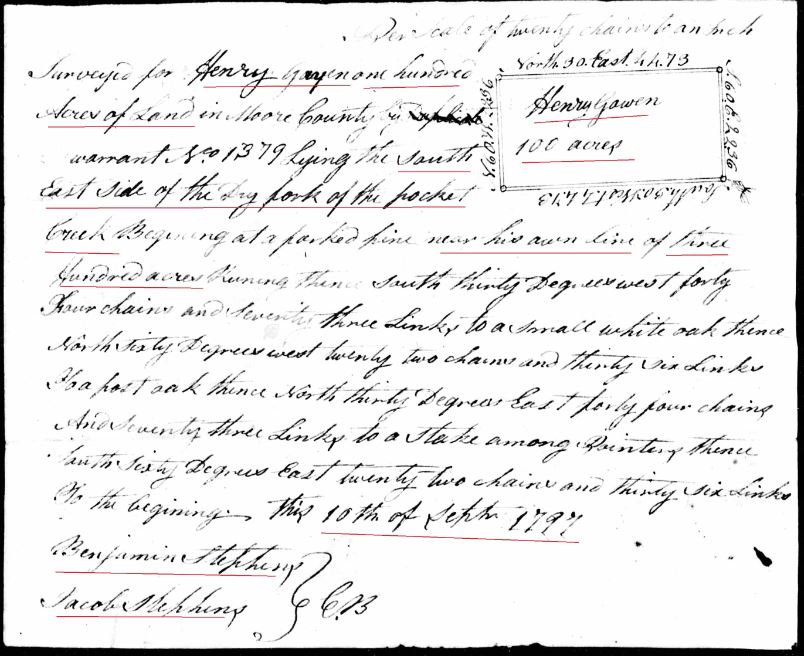 Per Scale of twenty chains to an inch
Surveyed for Henry Gowen one hundred
Acres of Land in Moore County by
warrant No 1379 Lying the south
East side of the Dry fork of the pocket
Creek Begining at a forked pine near his own line of three
Hundred acres Runing thence South thirty Degrees west forty
Four chains and Seventy three Links to a small white oak thence
North Sixty Degrees west twenty two chains and thirty six Links
To a post oak thence North thirty Degrees East forty four chains
And Seventy three Links to a Stake among Pointers thence
South Sixty Degrees East twenty two chains and thirty six Links
To the begining this 10th of Septr 1797
Benjamin Stephens
Jacob Stephens
C.B
North 30 East 44.73
Henry Gowen
100 acres
South 30 West 44.73
N 60 W 2236
S 60 E 2236